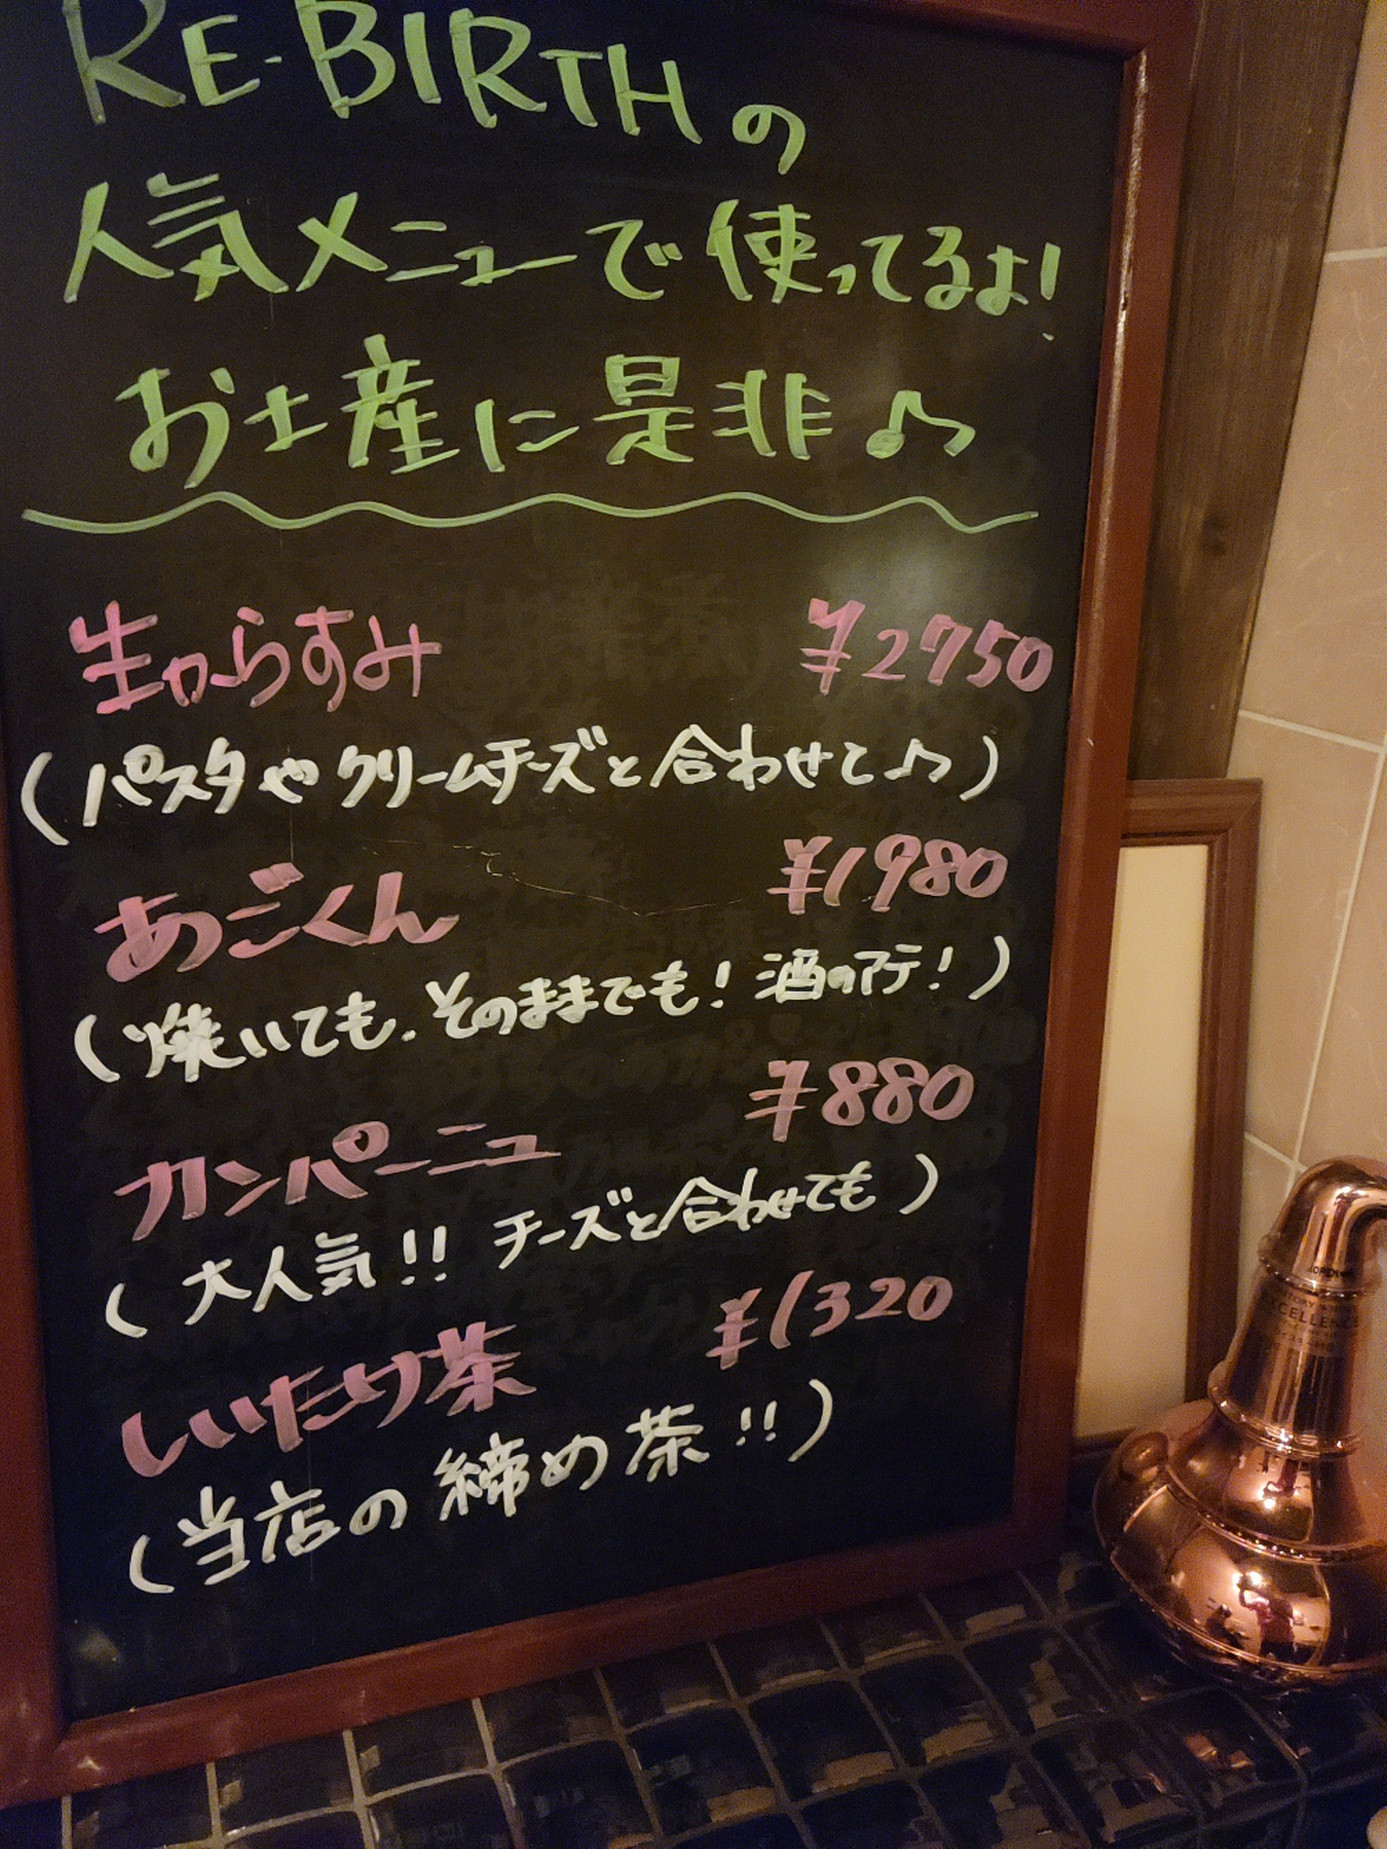 RE-BIRTHの
人気メニューで使ってるよ!
お土産に是非♪
生からすみ ¥2750
(パスタやクリームチーズと合わせて♪)
あごくん ¥1980
(焼いても、そのままでも!酒のアテ!)
カンパーニュ ¥880
(大人気!! チーズと合わせても)
しいたけ茶 ¥1320
(当店の締め茶!!)
EXCELLENCE